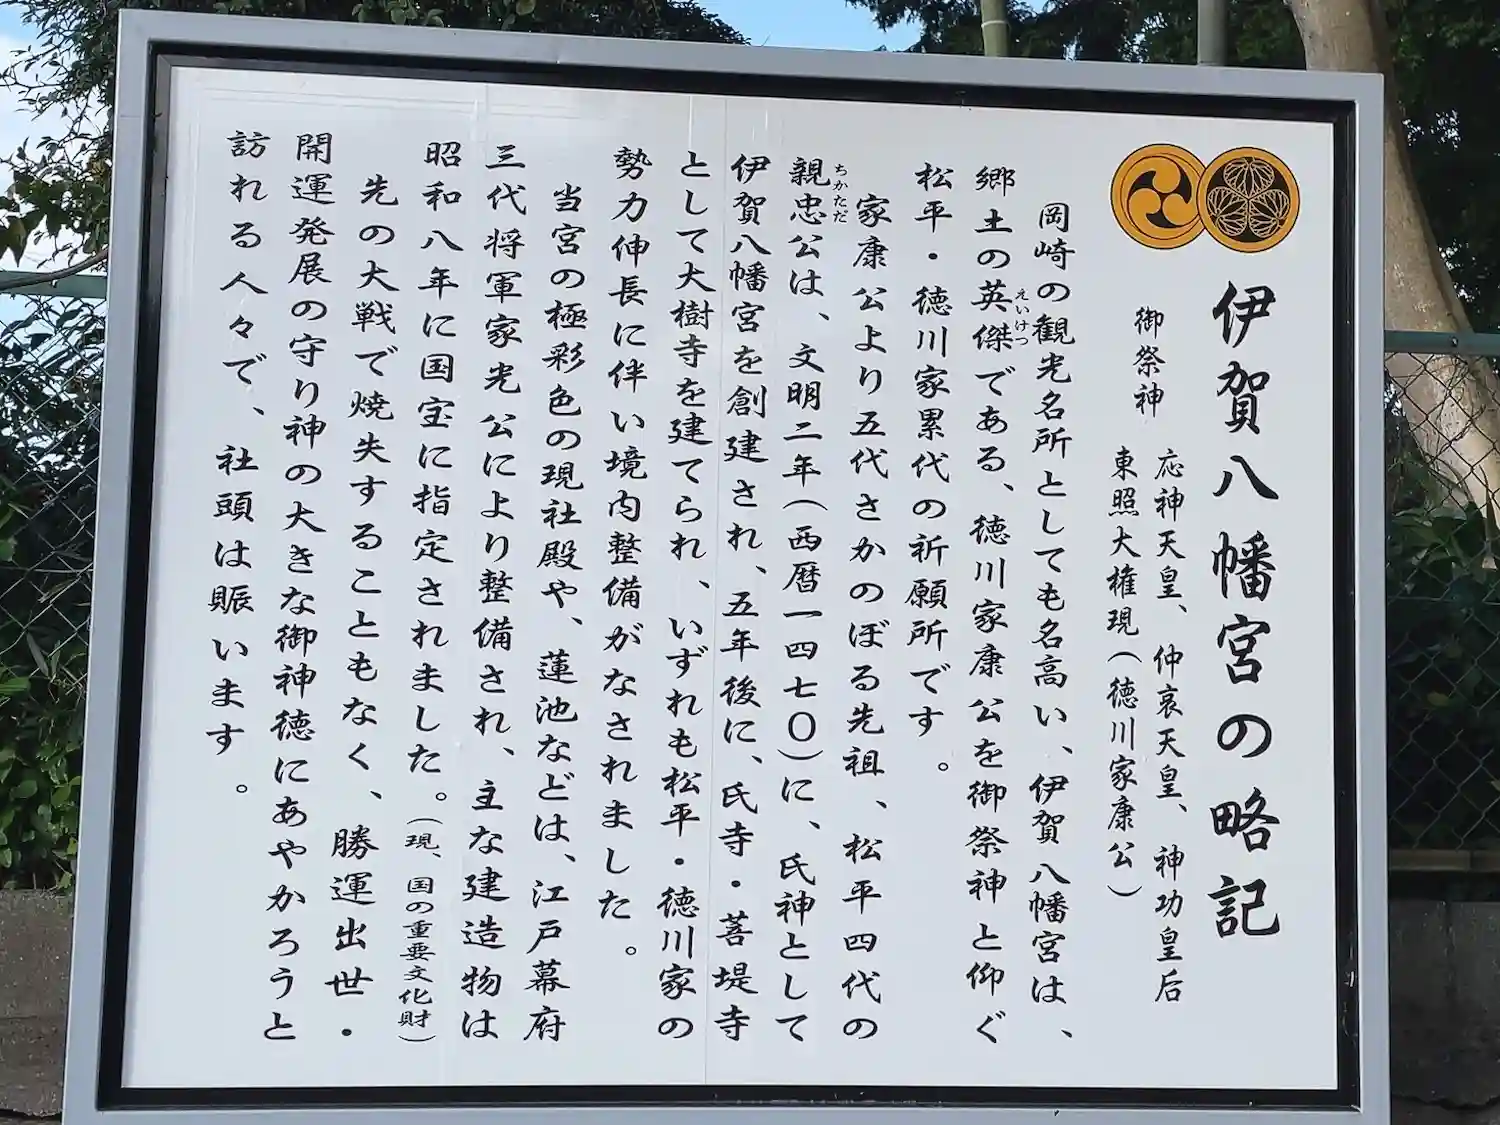 伊賀八幡宮の略記
御祭神
応神天皇、仲哀天皇、神功皇后
東照大権現（徳川家康公）
岡崎の観光名所としても名高い、伊賀八幡宮は、
郷土の英傑である、徳川家康公を御祭神と仰ぐ
えいけつ
松平・徳川家累代の祈願所です。
家康公より五代さかのぼる先祖、松平四代の
親忠公は、文明二年（西暦一四七〇）に、氏神として
ちかただ
伊賀八幡宮を創建され、五年後に、氏寺・菩堤寺
として大樹寺を建てられ、いずれも松平・徳川家の
勢力伸長に伴い境内整備がなされました。
当宮の極彩色の現社殿や、蓮池などは、江戸幕府
三代将軍家光公により整備され、主な建造物は
昭和八年に国宝に指定されました。（現、国の重要文化財）
先の大戦で焼失することもなく、勝運出世・
開運発展の守り神の大きな御神徳にあやかろうと
訪れる人々で、社頭は賑います。